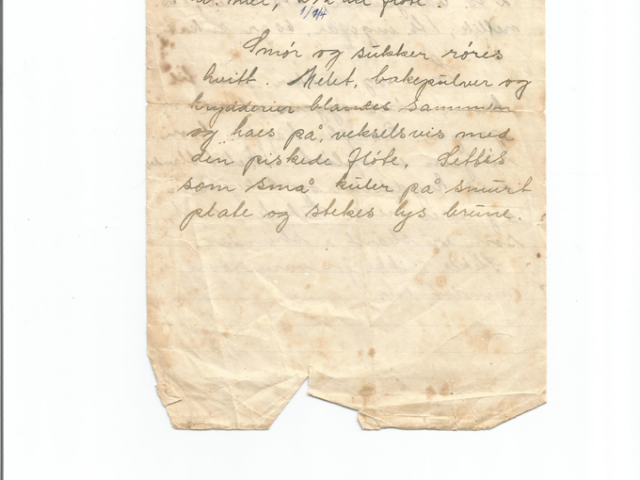 fløte.
1/4
Smør og sukker røres
hvitt. Melet, bakepulver og
krydderier blandes sammen
og haes på, vekselsvis med
den piskede fløte. Settes
som små kuler på smurt
plate og stekes lys brune.